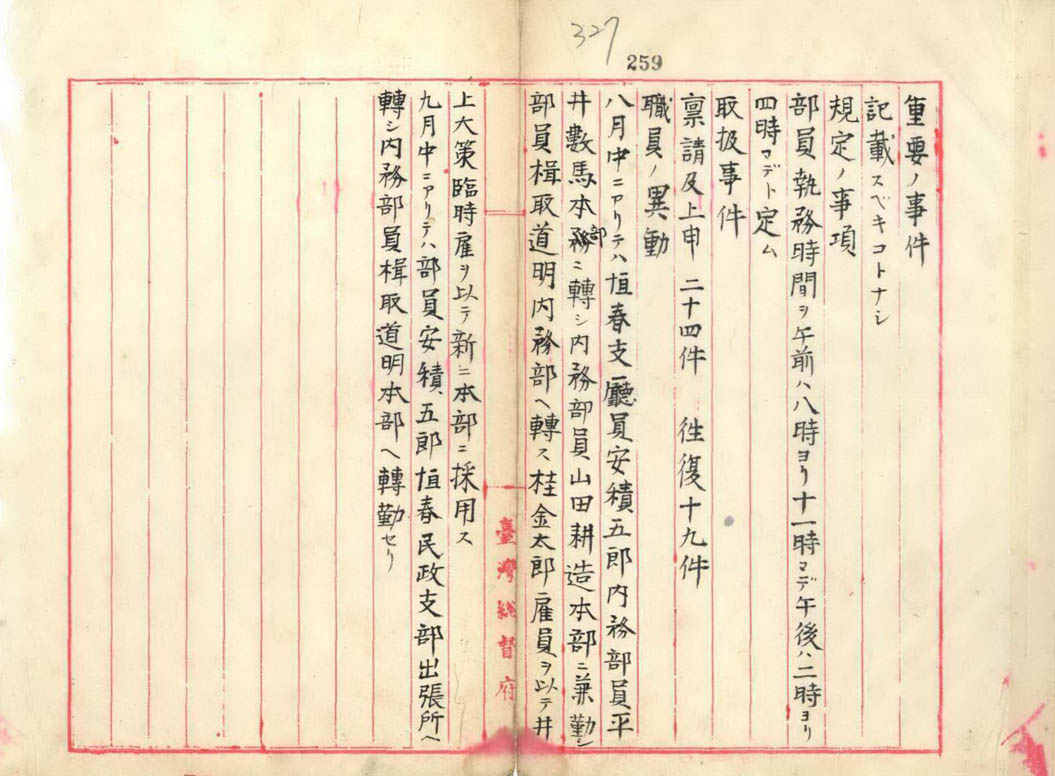 327
259
重要ノ事件
記載スベキコトナシ
規定ノ事項
部員執務時間ヲ午前ハ八時ヨリ十一時マデ午後ハ二時ヨリ
四時マデト定ム
取扱事件
稟請及上申 二十四件 往復十九件
職員ノ異動
八月中ニアリテハ恒春支廳員安積五郎内務部員平
井數馬本部務ニ轉シ内務部員山田耕造本部ニ兼勤シ
部員楫取道明内務部ヘ轉ス桂金太郎ニ雇員ヲ以テ井
臺灣總督府
上大策臨時雇ヲ以テ新ニ本部ニ採用ス
九月中ニアリテハ部員安積五郎恒春民政支部出張所ヘ
轉シ内務部員楫取道明本部ヘ轉勤セリ